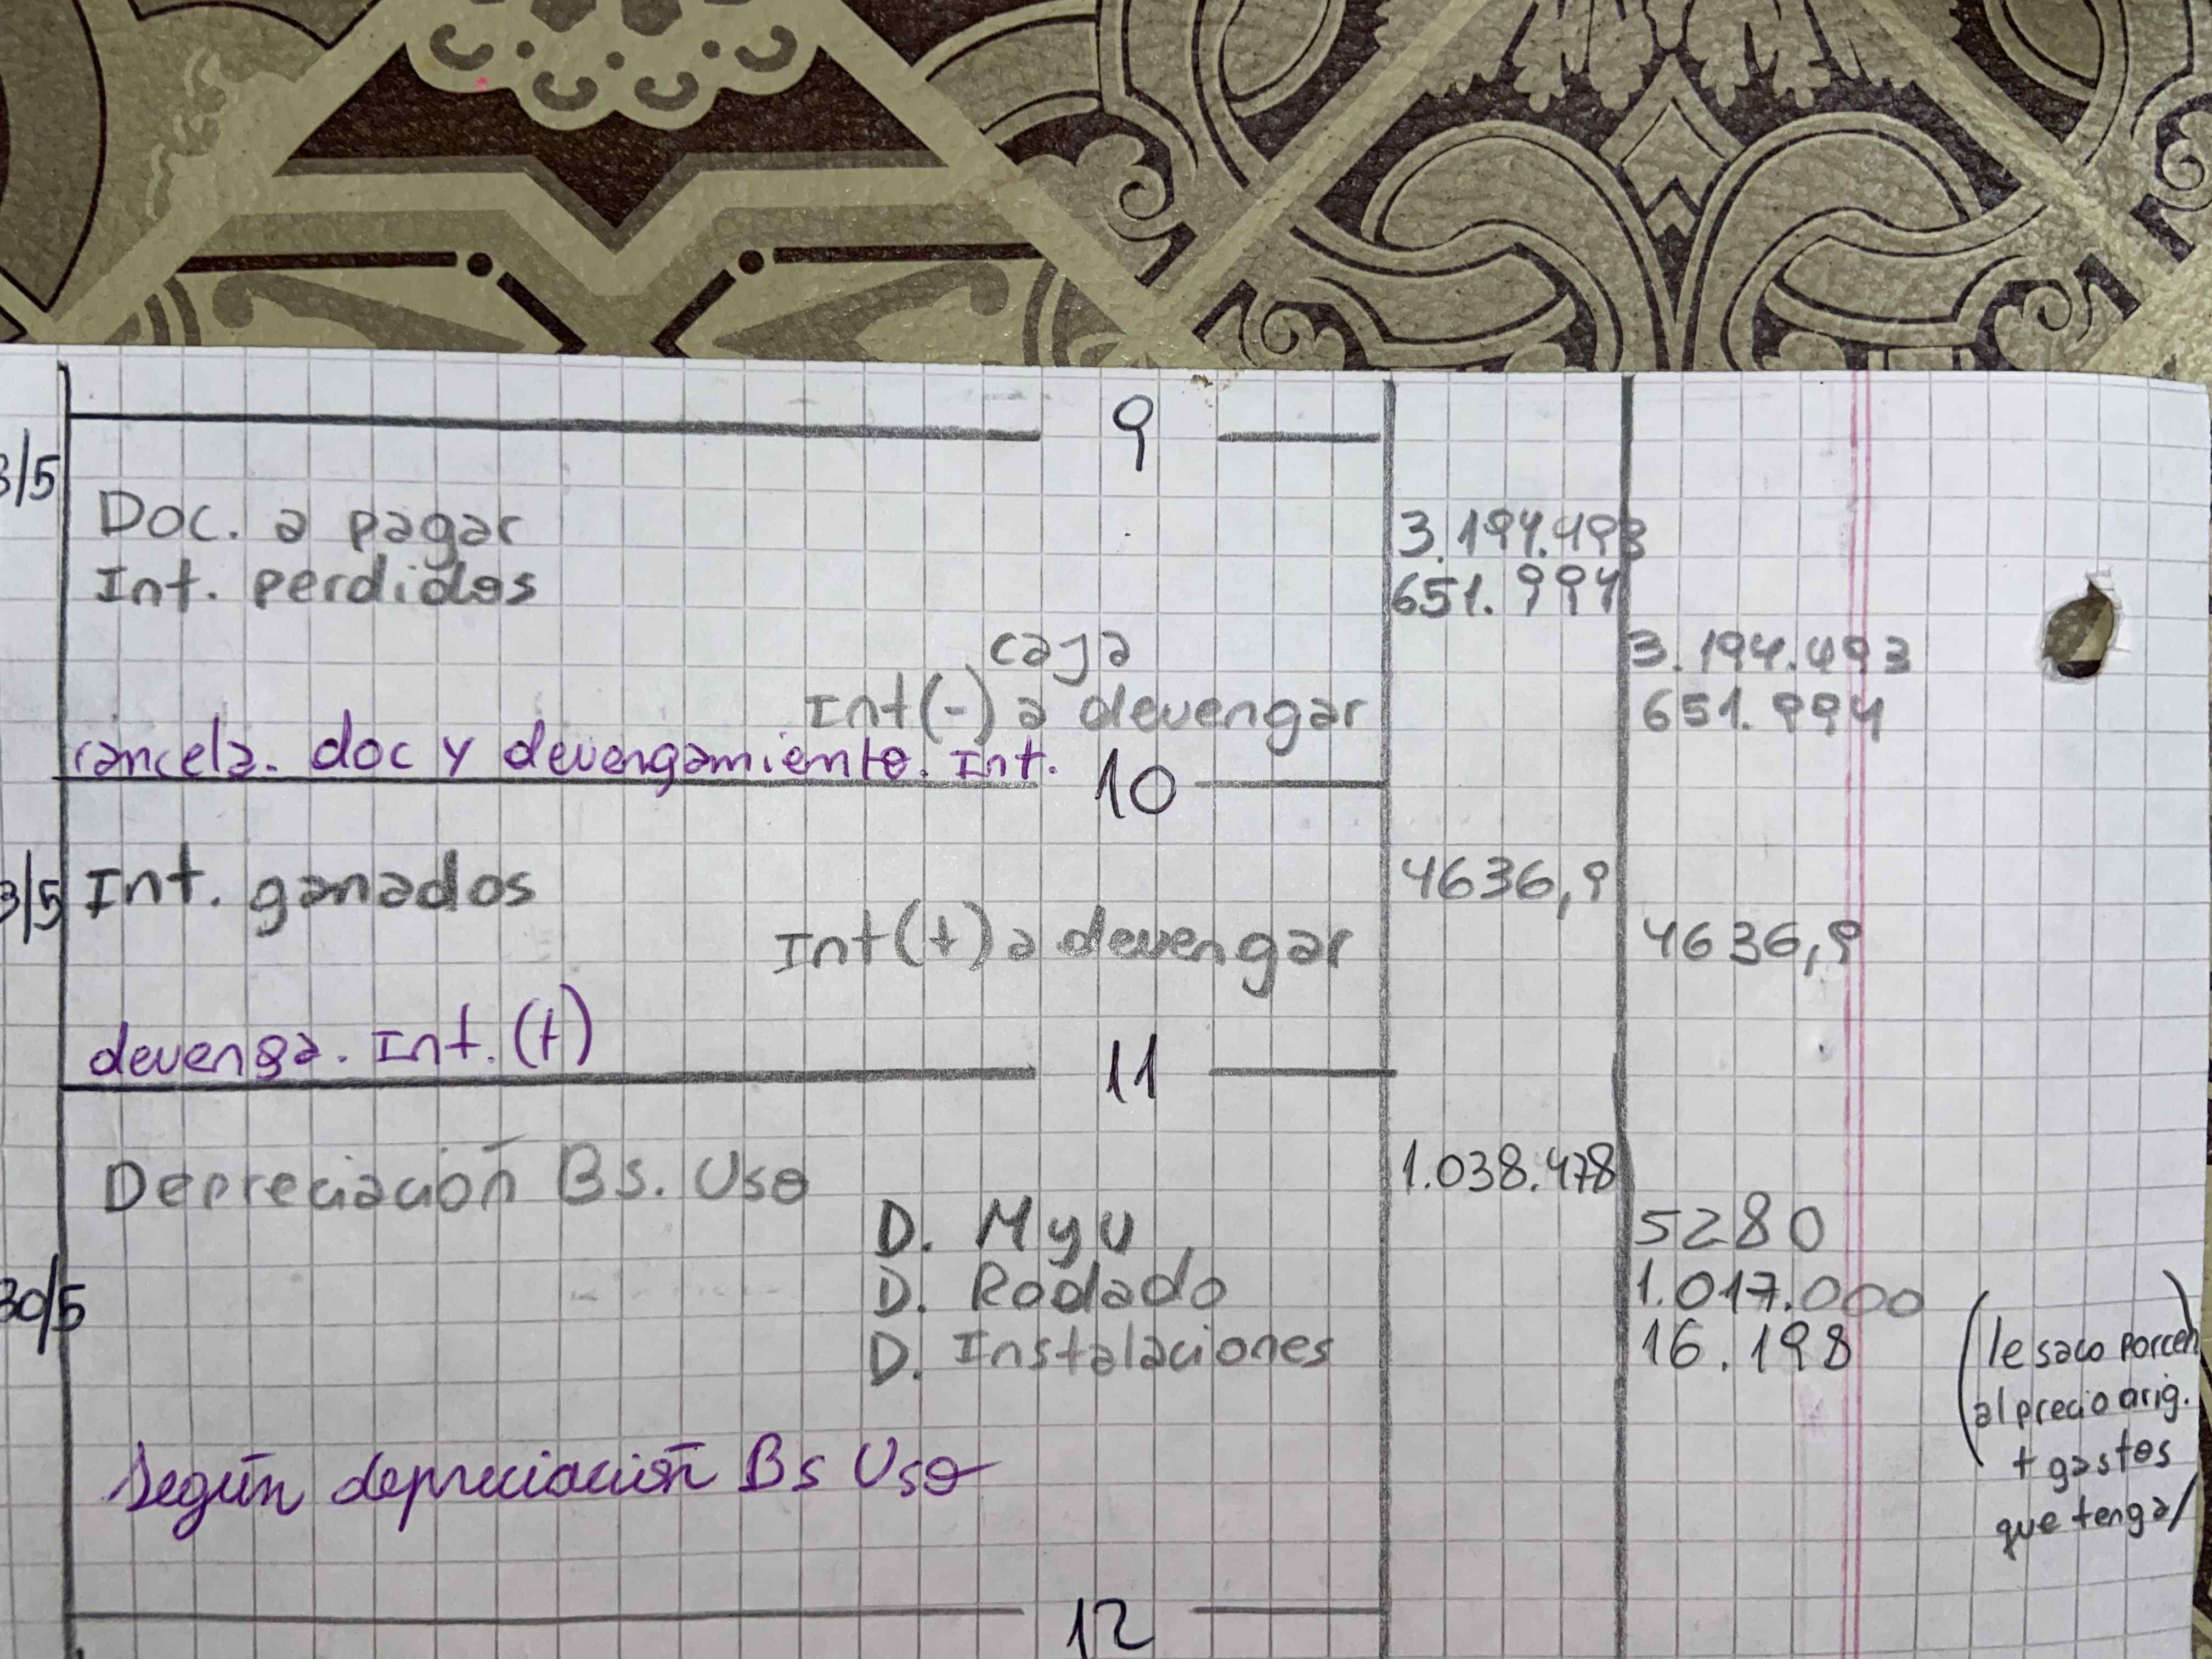 9
3/5
Doc. a pagar 3.194.493
Int. perdidos 651.994
caja 3.194.493
Int(-) a devengar 651.994
cancela. doc y devengamiento. Int.
10
3/5 Int. ganados 4636,9
Int(+) a devengar 4636,9
devenga. Int. (+)
11
Depreciación Bs. Uso 1.038.478
D. M y U 5280
30/5 D. Rodado 1.017.000
D. Instalaciones 16.198
(le saco porcen
al precio orig.
+ gastos
que tenga)
Según depreciación Bs Uso
12